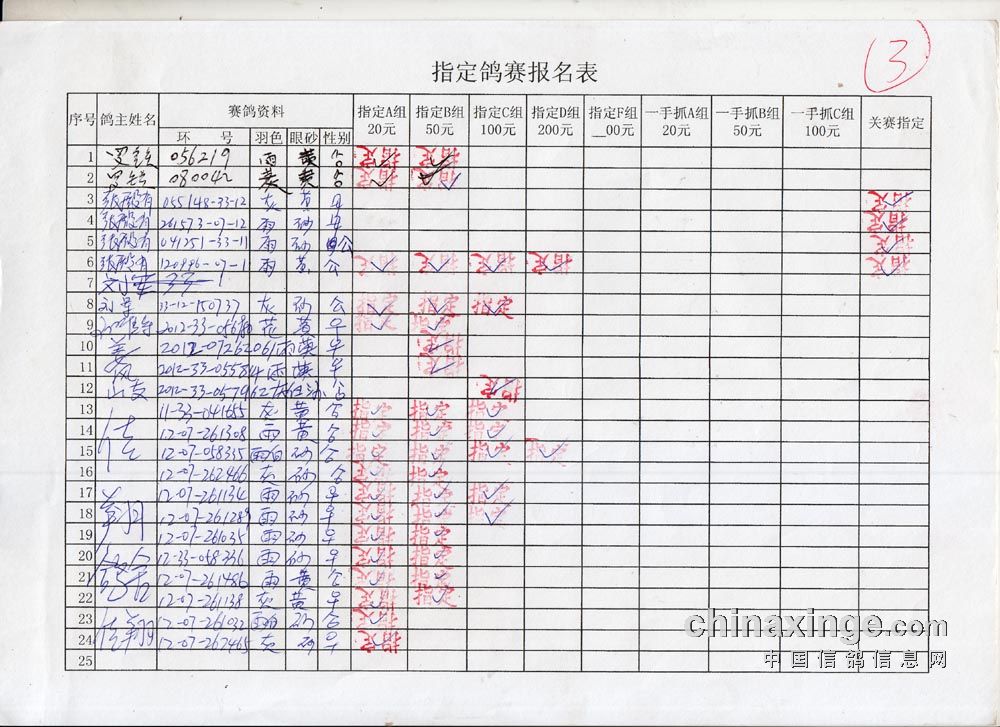 3
指定鸽赛报名表
序号 鸽主姓名 赛鸽资料 指定A组 20元 指定B组 50元 指定C组 100元 指定D组 200元 指定F组 __00元 一手抓A组 20元 一手抓B组 50元 一手抓C组 100元 关赛指定
环 号 羽色 眼砂 性别
1 056219 雨 黄 公 指定 指定
2 080042 灰 黄 公 指定 指定
3 055148-33-12 灰 黄 指定
4 261573-07-12 雨 砂 指定
5 041251-33-11 雨 砂 公 指定
6 120996-07-1 雨 黄 公 指定 指定 指定 指定 指定
7 刘军 33-1
8 刘军 33-12-150737 灰 砂 公 指定 指定 指定
9 2012-33- 花 黄 指定 指定
10 2012-07262061 雨 黄 指定
11 2012-33-05584 雨 黄 指定
12 2012-33-057962 灰 砂 公 指定
13 11-33-041655 灰 黄 公 指定 指定 指定
14 12-07-261308 雨 黄 公 指定 指定 指定
15 12-07-058335 雨白 砂 公 指定 指定 指定 指定
16 12-07-262466 灰 砂 公 指定 指定
17 12-07-261134 雨 砂 指定 指定 指定
18 12-07-261289 雨 砂 指定 指定 指定
19 翔 12-07-261035 雨 砂 指定 指定
20 12-33-058336 雨 砂 指定 指定
21 12-07-261486 雨 黄 公 指定 指定
22 12-07-261138 灰 黄 指定 指定
23 12-07-261032 雨 砂 公 指定
24 佳翔 12-07-262465 灰 砂 指定
25
chinaxinge.com
中国信鸽信息网